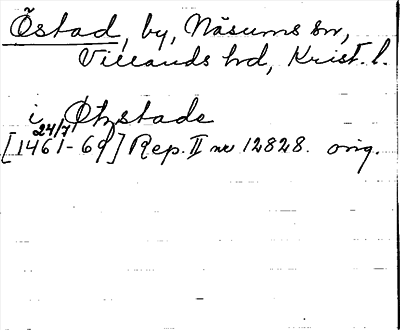 Östad, by, Näsums sn,
Villands hd, Krist. l.
i Øtzstade
24/7
[1461-69] Rep. II nr 12828. orig.